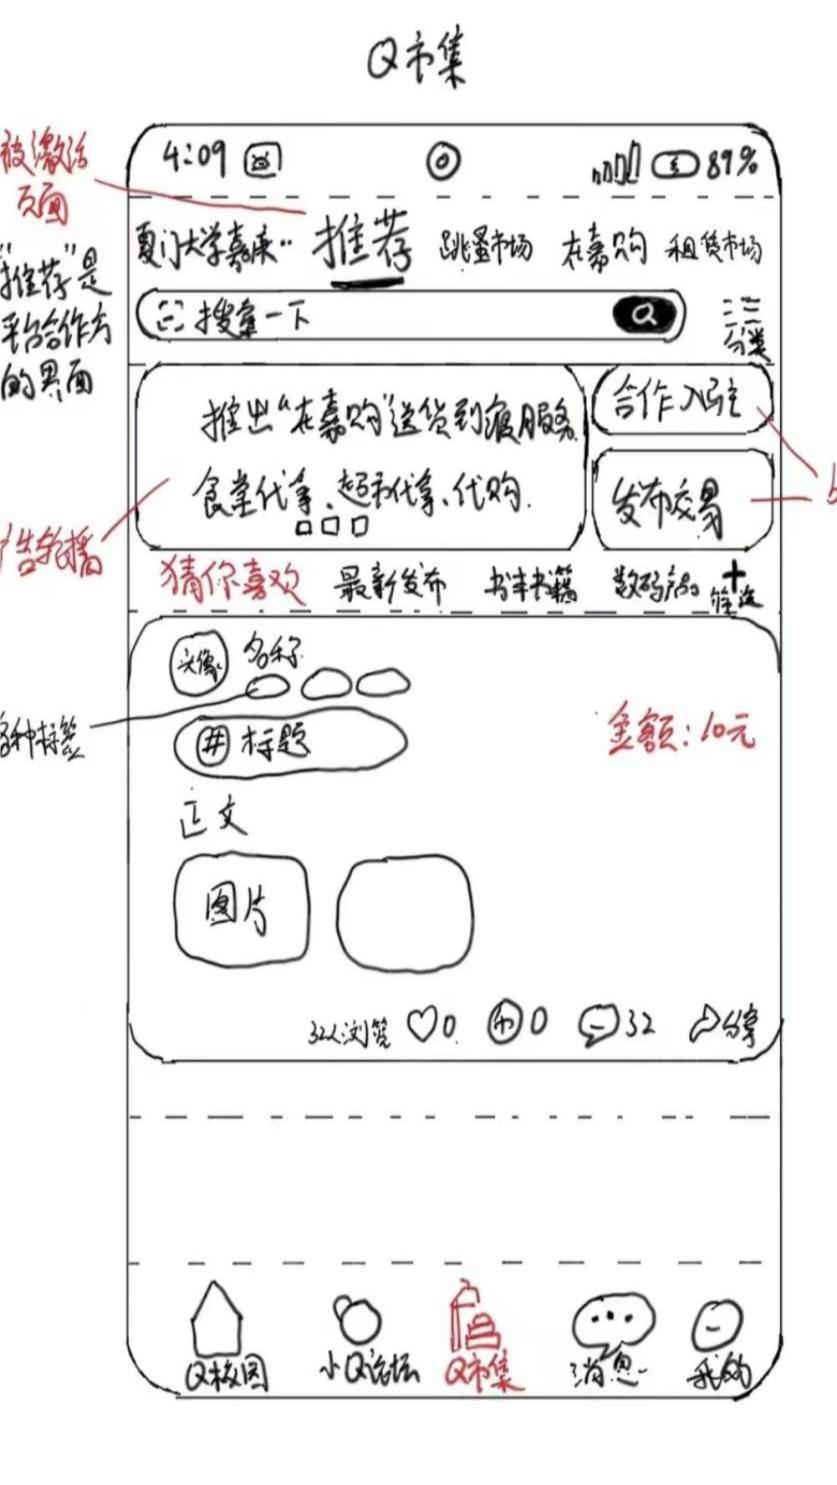 Q市集
被激活
页面
"推荐"是
平台合作方
的界面
4:09
89%
厦门大学嘉庚··
推荐
跳蚤市场
在嘉购
租赁市场
搜索一下
分类
推出"在嘉购"送货到寝服务
食堂代拿、超市代拿、代购.
合作入驻
发布交易
广告轮播
猜你喜欢
最新发布
书本书籍
数码产品
+
筛选
头像
名称
各种标签
# 标题
金额:10元
正文
图片
32人浏览
0
0
32
分享
Q校园
小Q论坛
Q市集
消息
我的